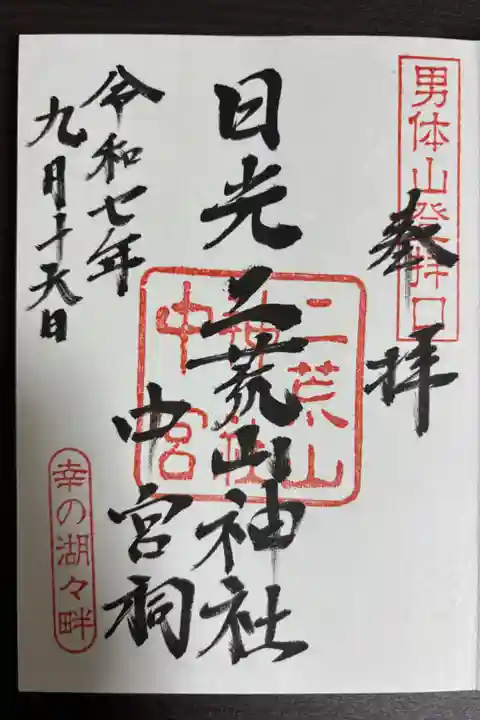 男体山登拝口
奉拝
日光二荒山神社
中宮祠
二荒山
神社
中宮
令和七年
九月十六日
幸の湖々畔